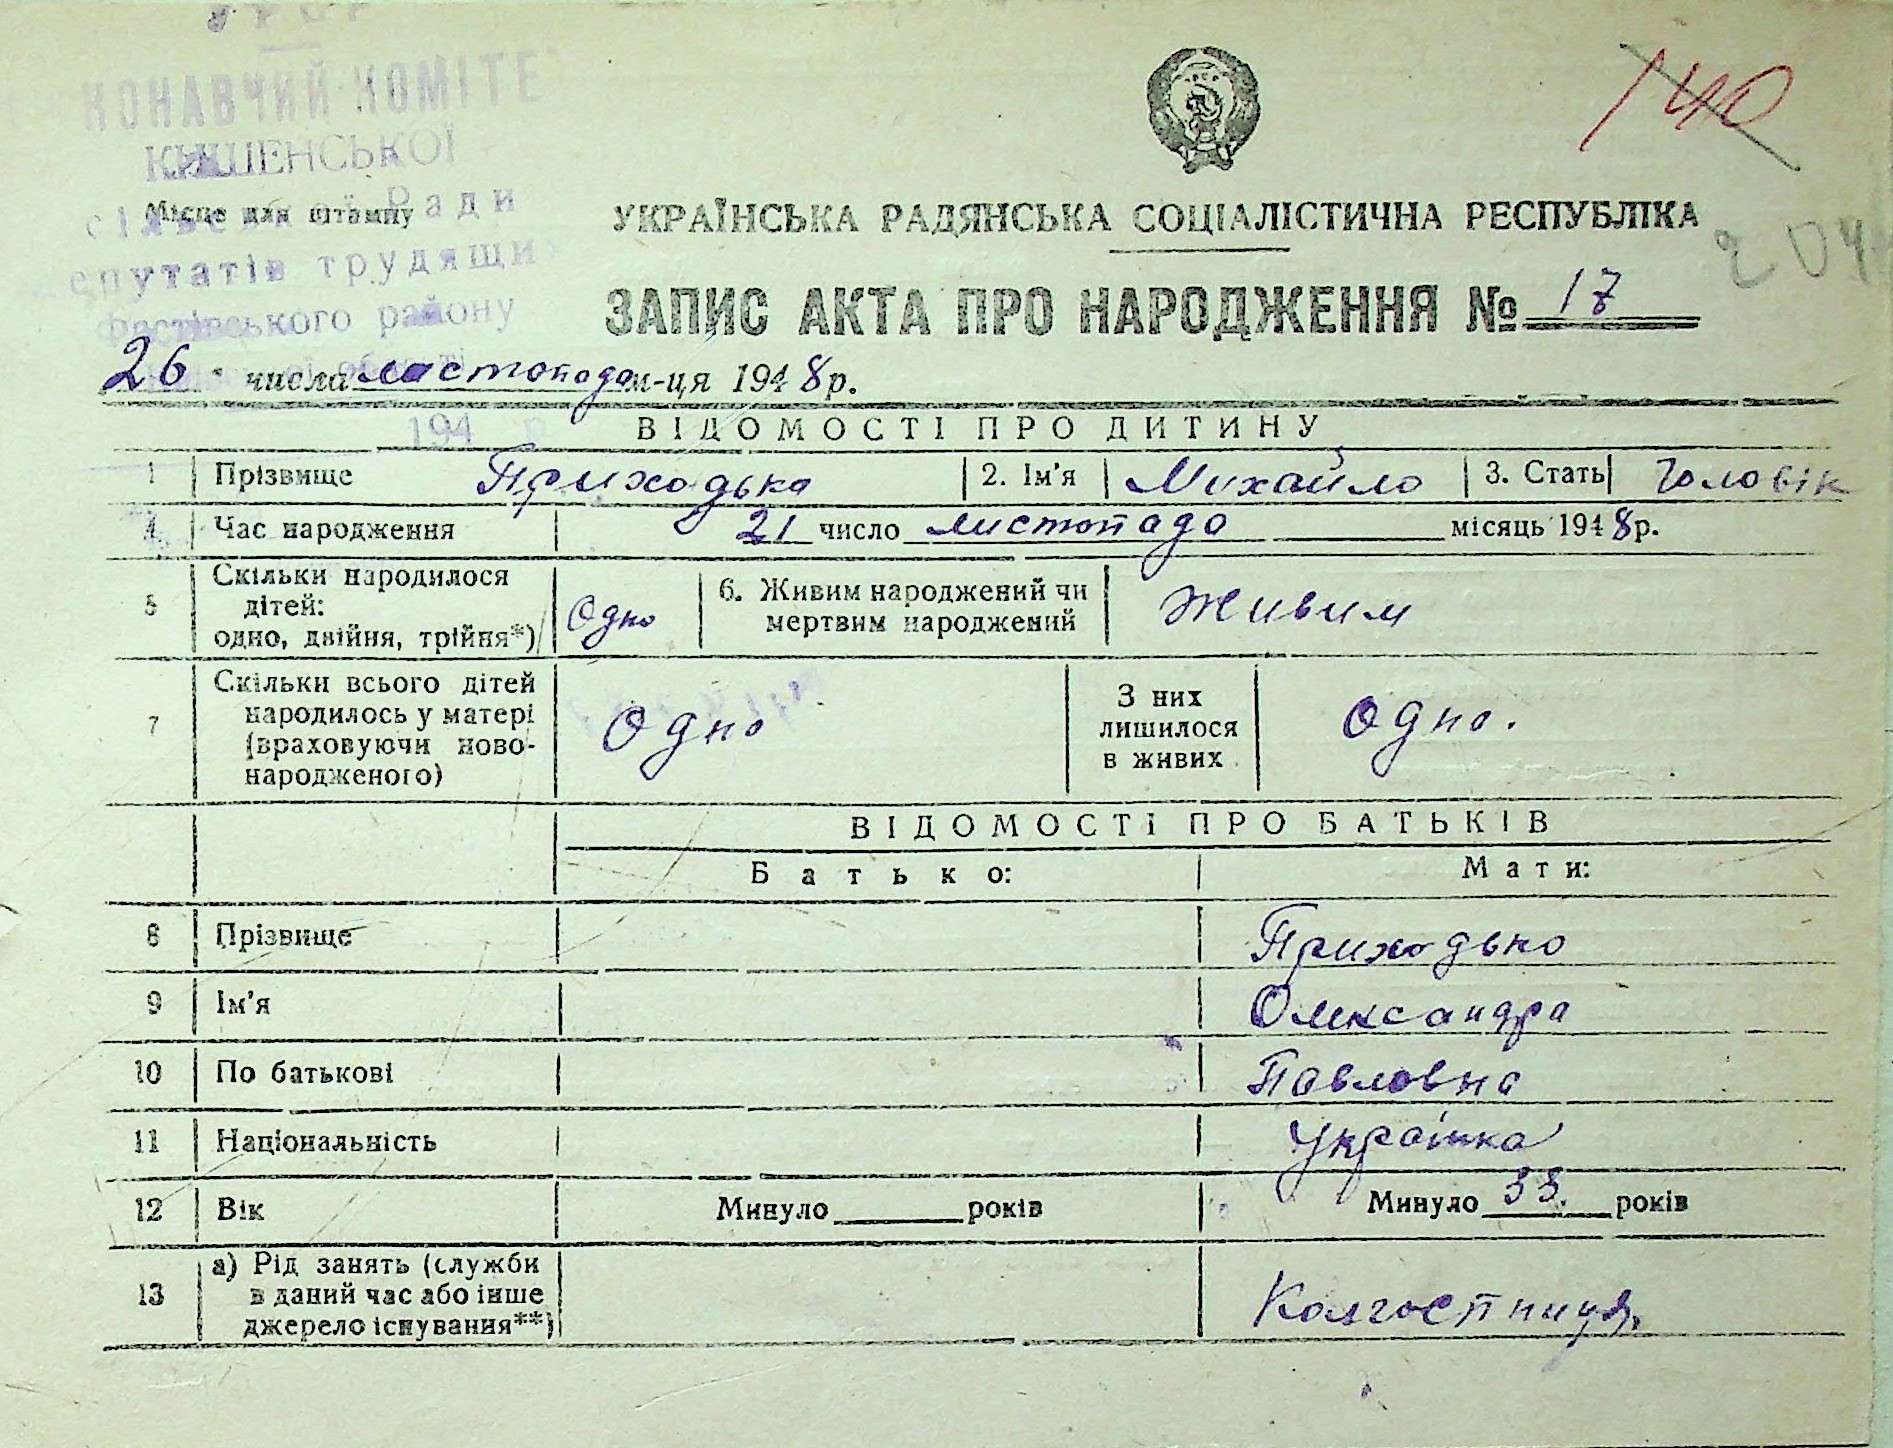 УРСР
КОНАВЧИЙ КОМІТЕ
КИШЕНСЬКОЇ
Місце для штампу
сільської Ради
епутатів трудящи
Фастівського району
194
140
204
УКРАЇНСЬКА РАДЯНСЬКА СОЦІАЛІСТИЧНА РЕСПУБЛІКА
ЗАПИС АКТА ПРО НАРОДЖЕННЯ № 17
26 числа листопада м-ця 1948 р.
ВІДОМОСТІ ПРО ДИТИНУ
1 Прізвище Приходько 2. Ім'я Михайло 3. Стать Чоловік
4 Час народження 21 число листопада місяць 1948 р.
5 Скільки народилося
дітей:
одно, двійня, трійня*) Одно 6. Живим народжений чи
мертвим народжений Живим
7 Скільки всього дітей
народилось у матері
(враховуючи ново-
народженого) Одно З них
лишилося
в живих Одно.
ВІДОМОСТІ ПРО БАТЬКІВ
Батько: Мати:
8 Прізвище Приходько
9 Ім'я Олександра
10 По батькові Павловна
11 Національність Українка
12 Вік Минуло років Минуло 33 років
13 а) Рід занять (служби
в даний час або інше
джерело існування**) Колгоспниця